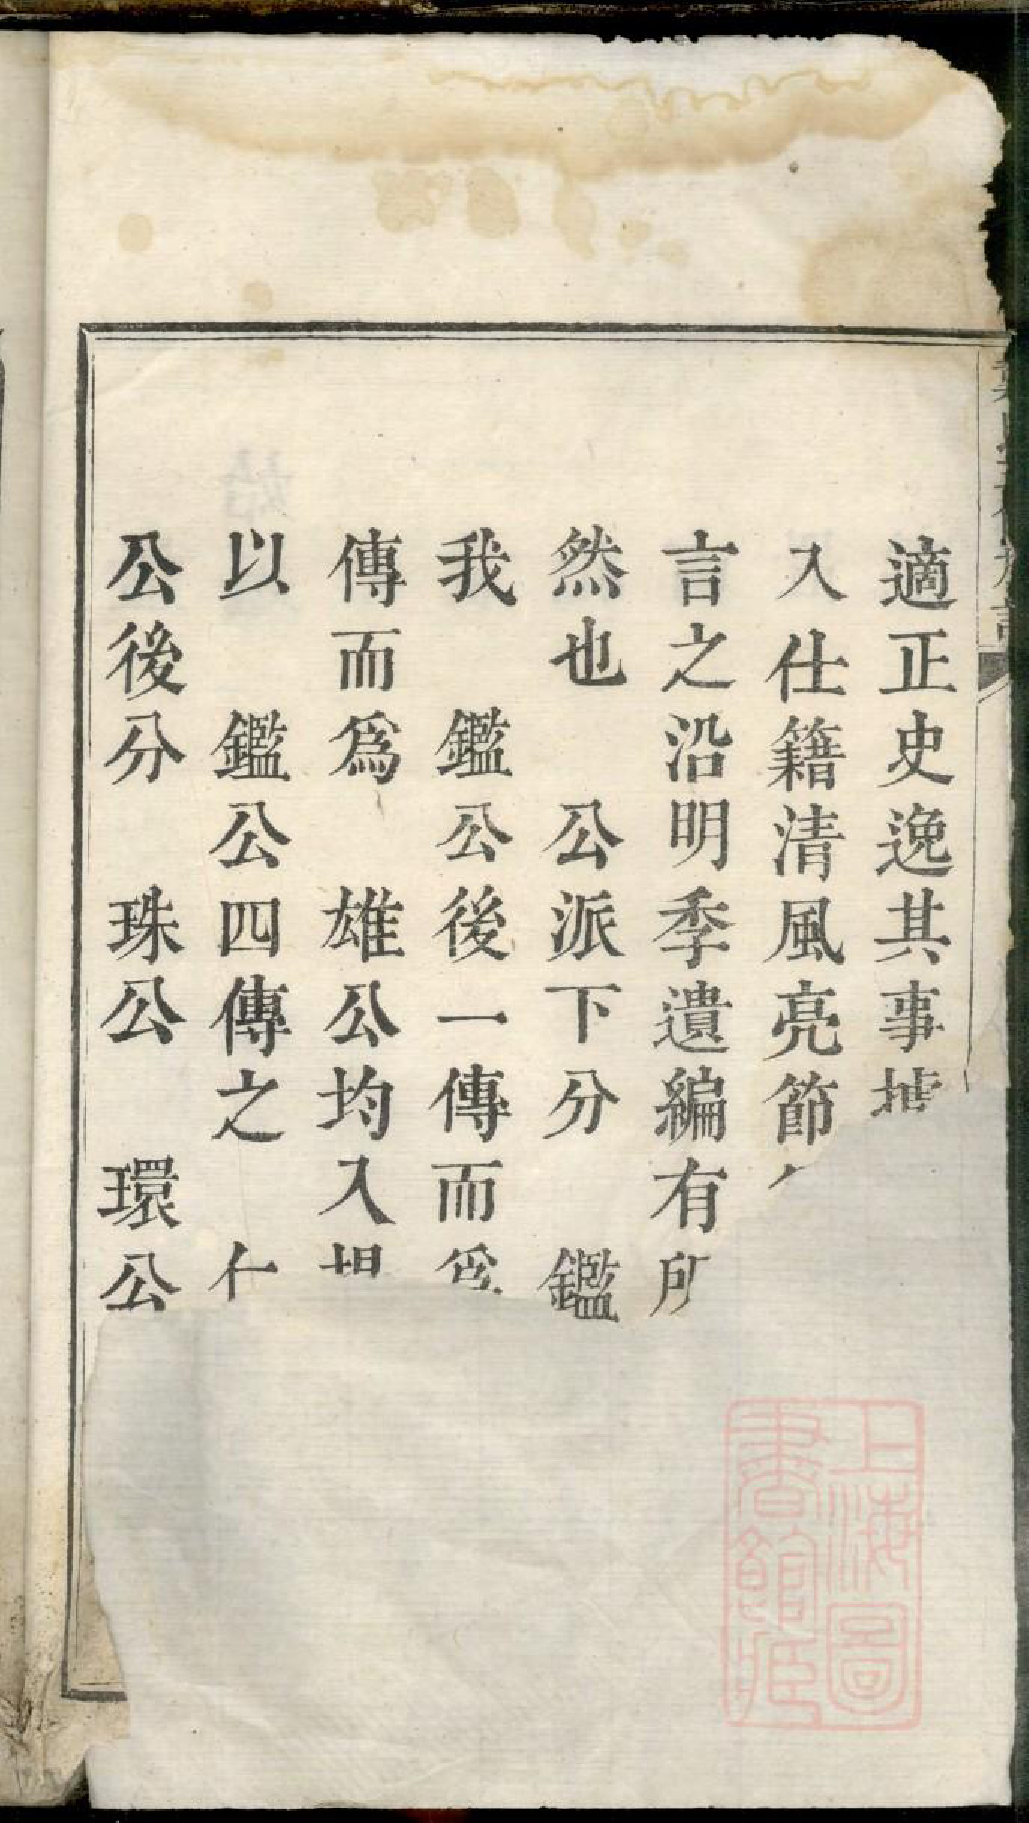 適正史逸其事
入仕籍清風亮節
言之沿明季遺編有所
然也　公派下分　鑑
我　鑑公後一傳而爲
傳而爲　雄公均入
以　鑑公四傳之
公後分　珠公　環公
上海圖
書館藏